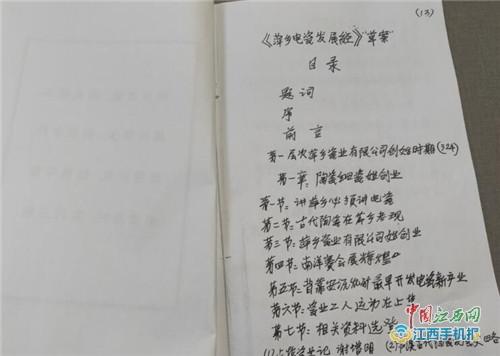 (13)
《萍乡电瓷发展经》"草案"
目录
题词
序
前言
第一层次萍乡瓷业有限公司创始时期(324)
第一章:陶瓷 始创业
第一节:讲萍乡必须讲电瓷
第二节:古代陶瓷在萍乡考观
第三节:萍乡瓷业有限公司始创业
第四节:南洋赛会展辉煌
第五节: 最早开发电瓷新产业
第六节:瓷业工人运动在上
第七节:相关资料选登
谢增明
中国江西网
江西手机报